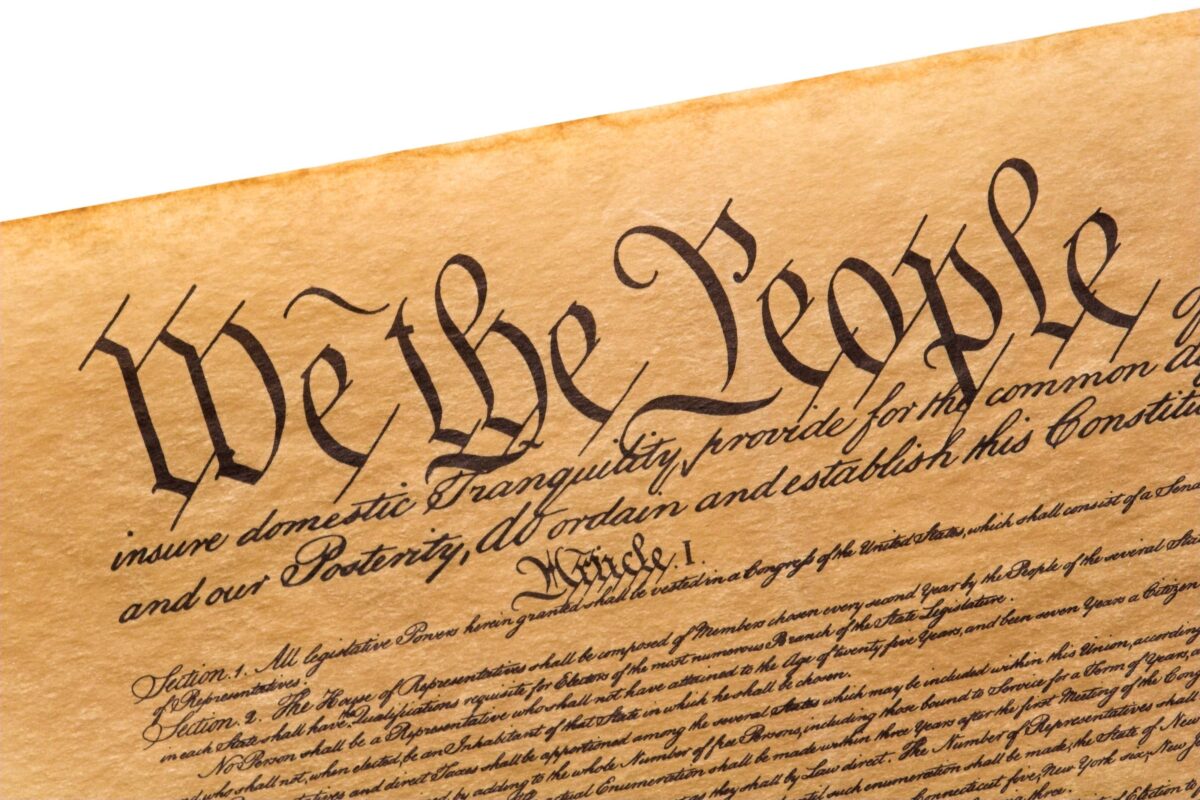 We the People
insure domestic Tranquility, provide for the common
and our Posterity, do ordain and establish this
Article. I.
Section. 1. All legislative Powers herein granted shall be vested in a Congress of the United States, which shall consist of a
of Representatives.
Section. 2. The House of Representatives shall be composed of Members chosen every second Year by the People of the several
in each State shall have the Qualifications requisite for Electors of the most numerous Branch of the State Legislature.
No Person shall be a Representative who shall not have attained to the Age of twenty five Years, and been seven Years a Citizen
who shall not, when elected, be an Inhabitant of that State in which he shall be chosen.
and direct Taxes shall be apportioned among the several States which may be included within this Union, according
by adding to the whole Number of free Persons, including those bound to Service for a Term of Years,
Enumeration shall be made within three Years after the first Meeting of the
as they shall by Law direct. The Number of Representatives
such enumeration shall be made, the State of New
five, New York six, New
three.